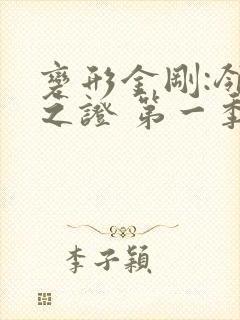 變形金剛:領
之證 第一季
李子穎